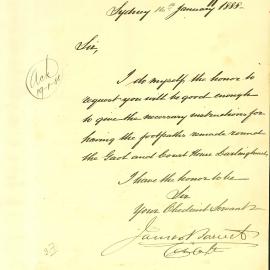 Sydney 14th January 1888.
Sir,
Ack
19.1.88
I do myself the honor to
request you will be good enough
to give the necessary instructions for
having the footpaths remade round
the Gaol and Court House Darlinghurst
I have the honor to be
Sir
Your Obedient Servant
James Barnet